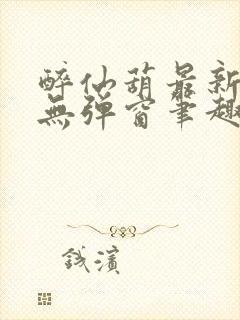 醉仙葫最新
無彈窗筆趣
錢濱